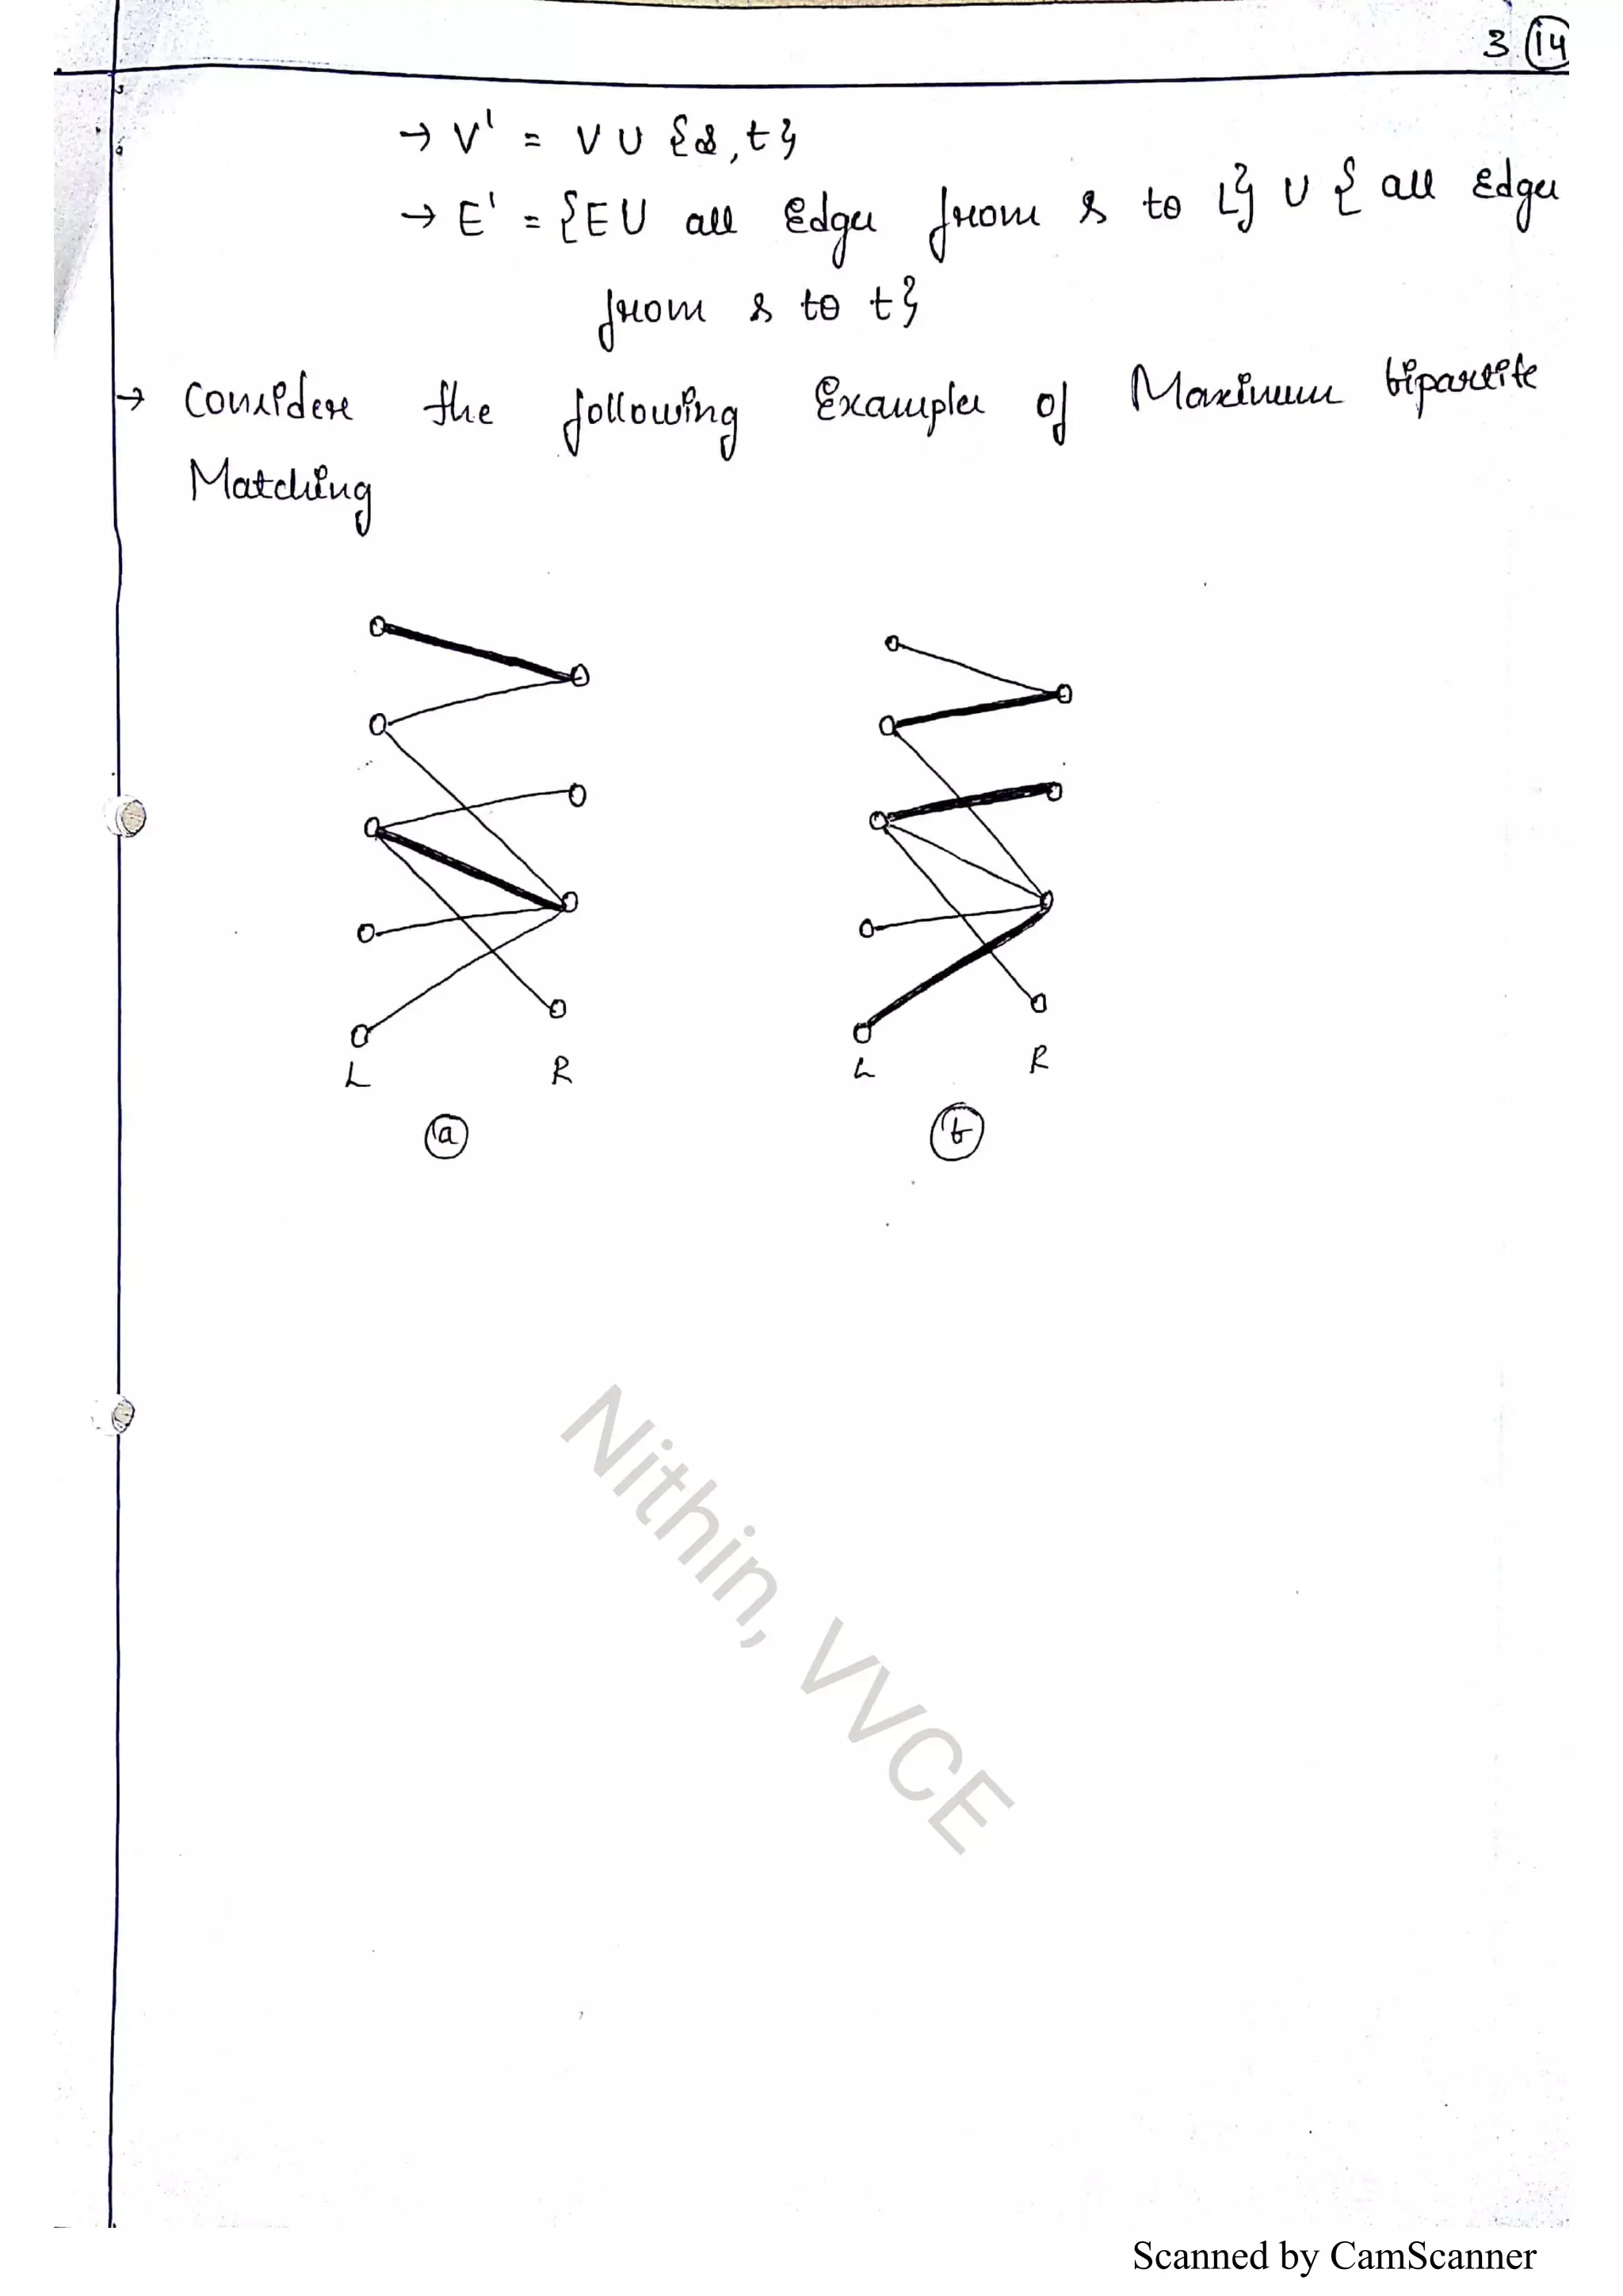 3 14
→ V' = V U {s,t}
→ E' = {E U all Edges from s to L} U { all Edges
from s to t}
→ Consider the following Examples of Maximum bipartite
Matching
L R L R
a b
Nithin, VVCE
Scanned by CamScanner